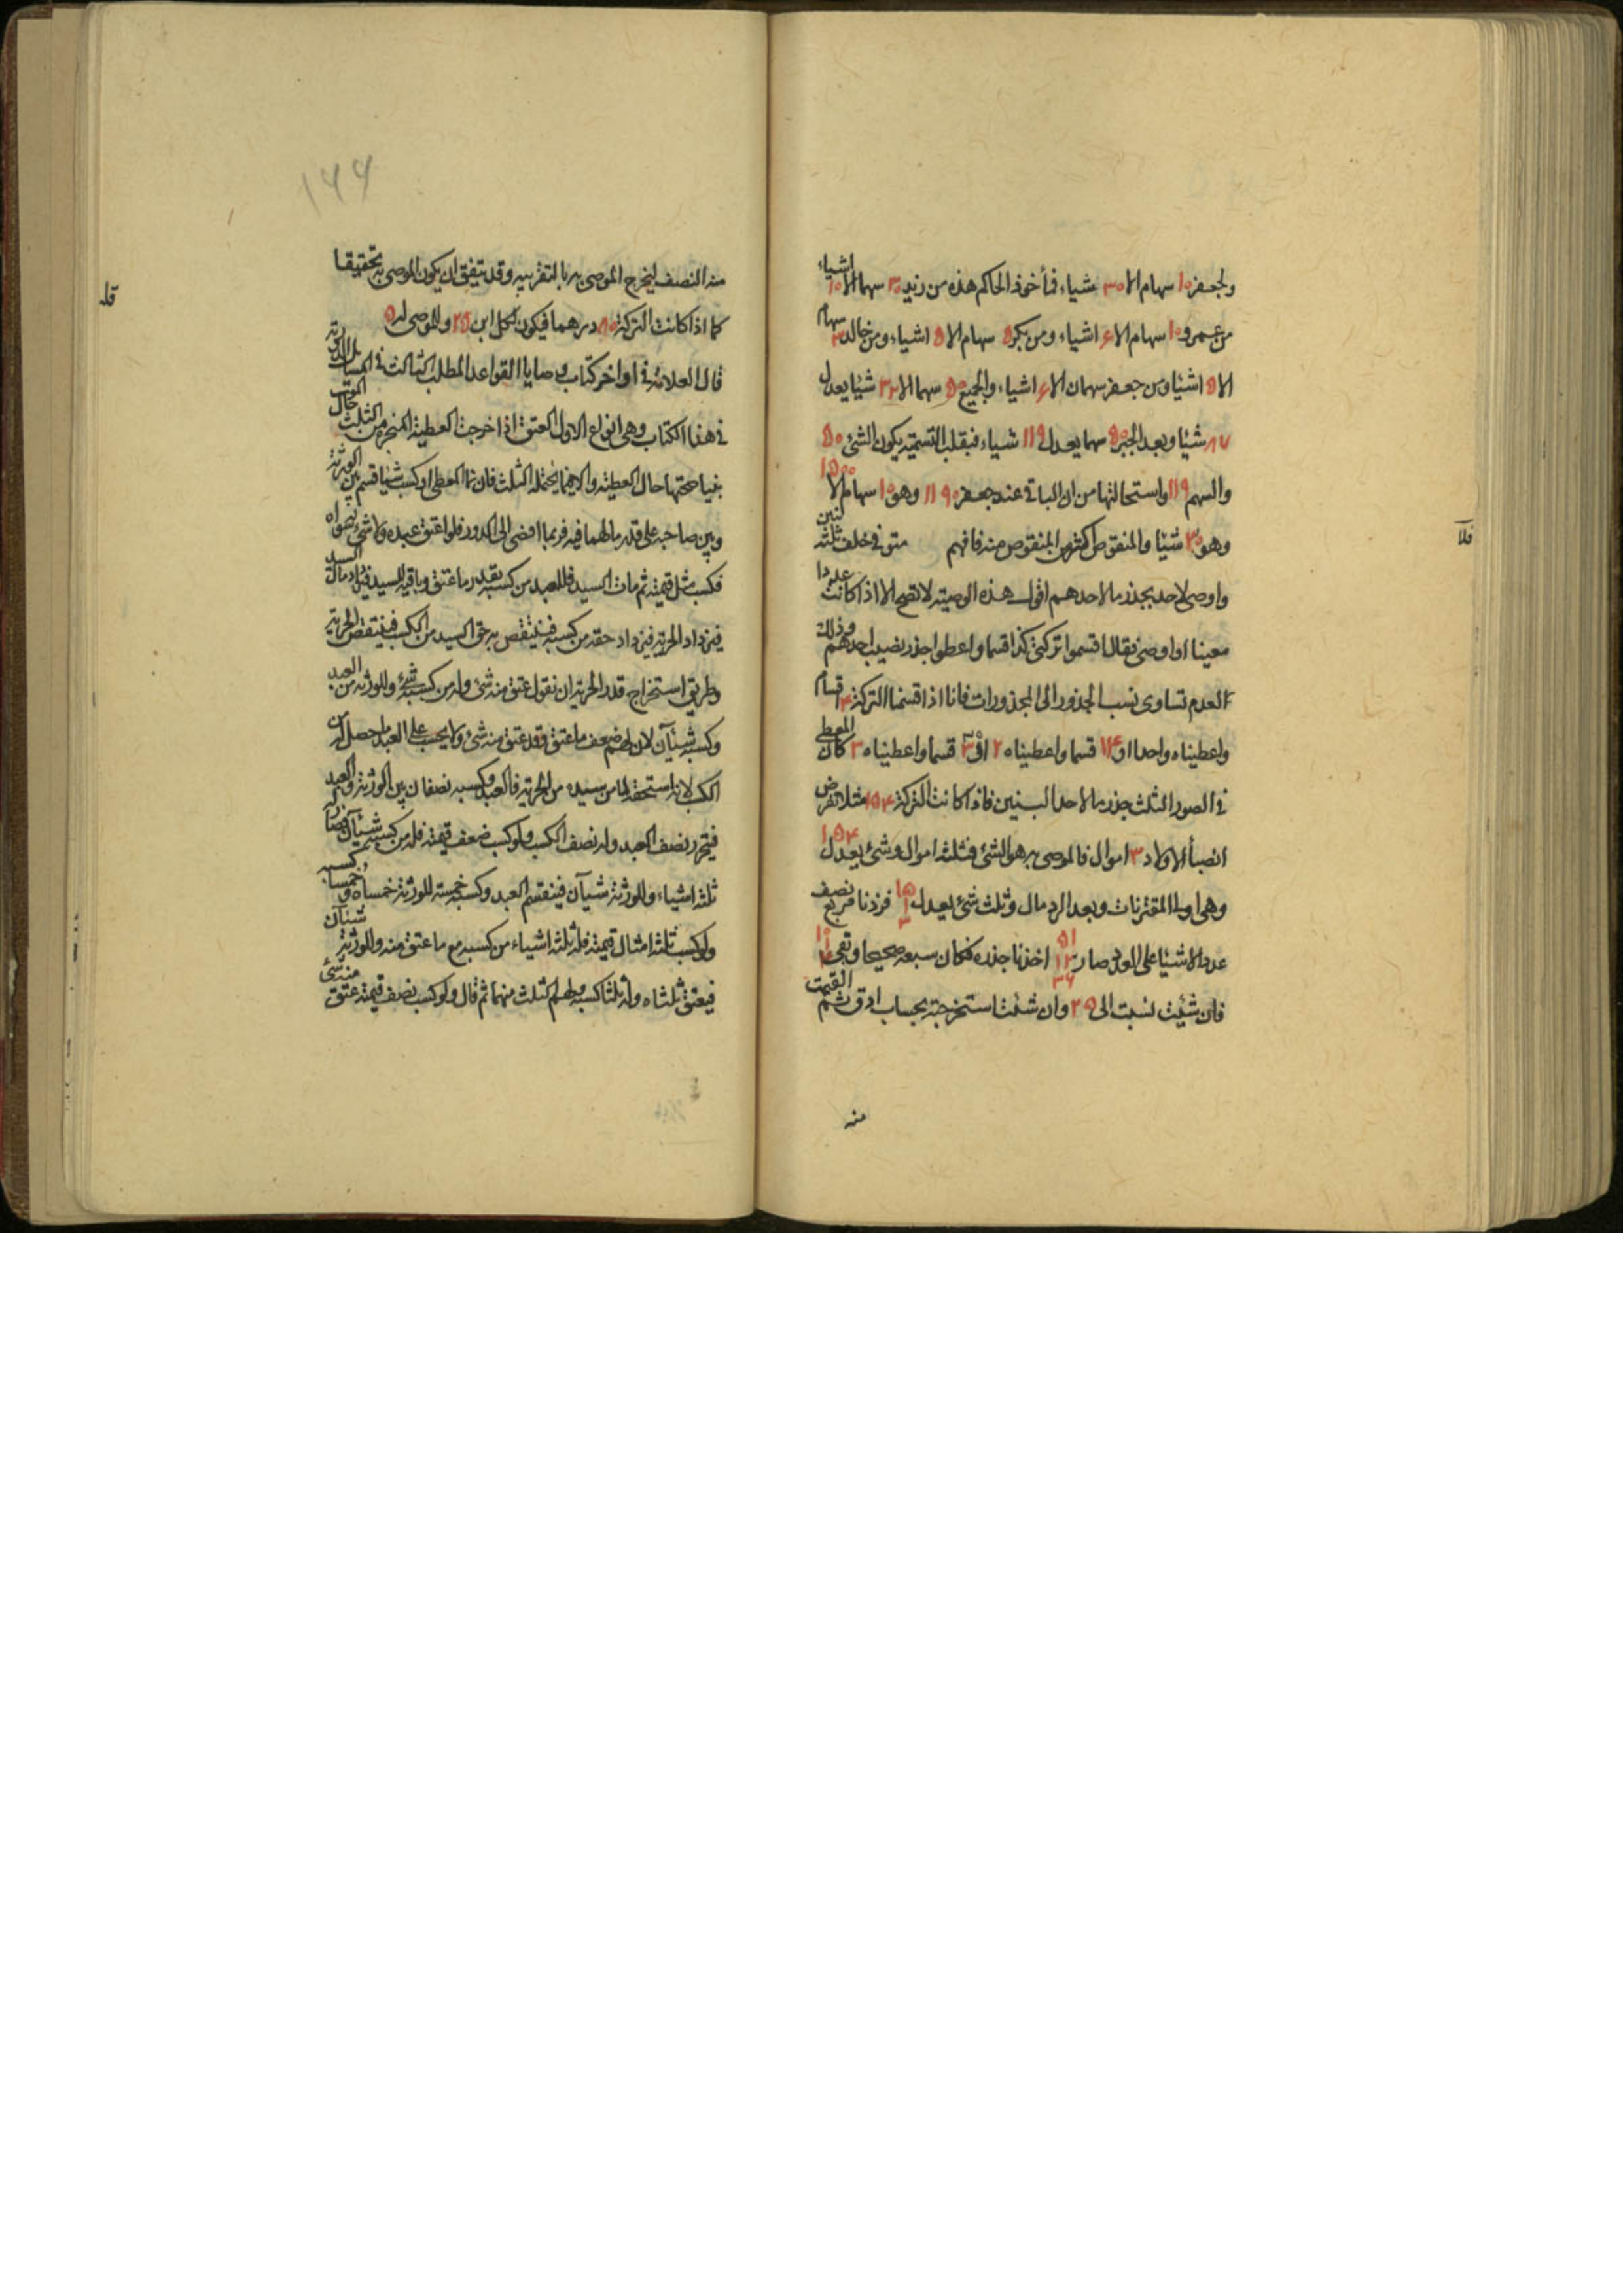 ولجعفر ١٠ سهام الا ٣٠ شياء فنأخذ الحاكم هذه من زيد ٢٠ سهما الا ١٠ اشياء
من عمرو ١٠ سهام الا ۶ اشياء ومن بكر ۵ سهام الا ۵ اشياء ومن خالد ٣ سهام
الا ۵ اشيا ومن جعفر سهمان الا ۶ اشياء والجميع ۵٠ سهما الا ٣٢ شيئا يعدل
٨٧ شيئا وبعد الجبر ۵٠ سهما يعدل ١١٩ شياء فبقلب التسمية يكون الشئ ۵٠
والسهم ١١٩ واستحالتها من ان الباقى عند جعفر ١١٩٠ وهو ١٠ سهام الا ١۵٠٠
وهو ٣٠ شيئا والمنقوص اكثر من المنقوص منه فافهم متوفى خلف ثلثة بنين
واوصى لاحد بجذر مال احدهم اقول هذه الوصية لا تصح الا اذا كانت عددا
معينا او اوصى فقال اقسموا تركتى كذا قسما واعطوا جذر نصيب احدهم وذلك
لعدم تساوى نسب الجذور الى المجذورات فانا اذا قسمنا التركة ۴ اقسام
واعطيناه واحدا او ١۴ قسما واعطيناه ٢ او ٣٠ قسما واعطيناه ٣ كان المعطى
فى الصور الثلث جذر مال احد البنين فاذا كانت التركة ١۵۴ مثلا نفرض
انصباء الاولاد ٣ اموال فالموصى به هو الشئ فثلثة اموال وشئ يعدل ١۵۴
وهى اولى المقترنات وبعد الرد مال وثلث شئ يعدل ۵١ ١ ٣ فزدنا مربع نصف
عدد الاشيا على العدد صار ۵١ ١٣ ٣۶ اخذنا جذره فكان سبعة صحيحا وبقى
فان شئت نسبت الى ٢٩ وان شئت استخرجته بحساب ادق ثم القيت
منه
منه النصف ليخرج الموصى به بالتقريب وقد يتفق ان يكون الموصى به تحقيقا
كما اذا كانت التركة ٨٠ درهما فيكون لكل ابن ٢۵ وللموصى له ۵
قال العلامة فى اواخر كتاب وصايا القواعد المطلب الثالث فى المسائل الدورية
فى هذا الكتاب وهى انواع الاول العتق اذا خرجت العطية المنجزة من الثلث حال الموت
بنينا صحتها حال العطية والا فيما يحتمله الثلث فان نما المعطى او كسب شيئا قسم بين الورثة
وبين صاحبه على قدر مالهما فيه فربما افضى الى الدور فلو اعتق عبده ولا شئ له سواه
فكسب مثل قيمته ثم مات السيد فللعبد من كسبه بقدر ما عتق وباقيه للسيد فيزداد مال السيد
فيزداد الحرية فيزداد حقه من كسبه فينتقص به حق السيد من الكسب فينتقص الحرية
وطريق استخراج قدر الحرية ان نقول عتق منه شئ وله من كسبه شئ وللورثة من العبد
وكسبه شيئآن لان لهم ضعف ما عتق وقد عتق منه شئ ولا يحسب على العبد ما حصل له من
الكسب لانه استحقه لا من سيده من الحرية فالعبد وكسبه نصفان بين الورثة والعبد
فيتحرر نصف العبد وله نصف الكسب ولو كسب ضعف قيمته فله من كسبه شيئآن فصار له
ثلثة اشياء وللورثة شيآن فينقسم العبد وكسبه خمسة للورثة خمساه وخمسا كسبه
ولو كسب ثلثة امثال قيمته فله ثلثة اشياء من كسبه مع ما عتق منه وللورثة شيئآن
فيعتق ثلثاه وله ثلثا كسبه ولهم الثلث منهما ثم قال ولو كسب نصف قيمته عتق منه شئ